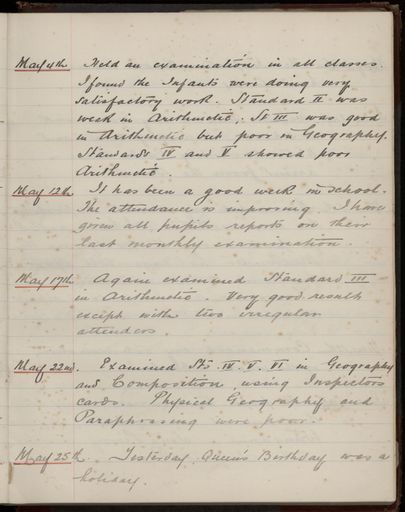 May 4th Held an examination in all classes.
I found the Infants were doing very
satisfactory work. Standard II was
weak in Arithmetic. St III was good
in Arithmetic but poor in Geography.
Standards IV and V showed poor
Arithmetic.
May 12th It has been a good week in school.
The attendance is improving. I have
given all pupils reports on their
last monthly examination.
May 17th Again examined Standard III
in Arithmetic. Very good result
except with two irregular
attenders.
May 22nd. Examined Sts. IV. V. VI in Geography
and Composition using Inspectors
cards. Physical Geography and
Paraphrasing were poor.
May 25th. Yesterday Queen's Birthday was a
holiday.